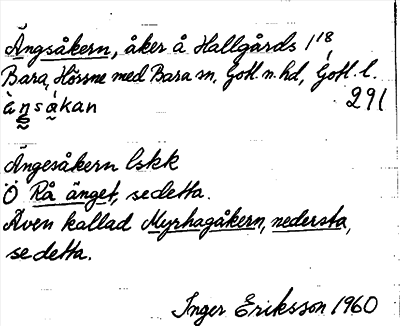 Ängsåkern, åker å Hallgårds 1¹⁸,
Bara, Hörsne med Bara sn, Gotl. n. hd, Gotl. l.
291
Ängesåkern lskk
Ö På änget, se detta.
Även kallad Myrhagåkern, nedersta,
se detta.
Inger Eriksson 1960